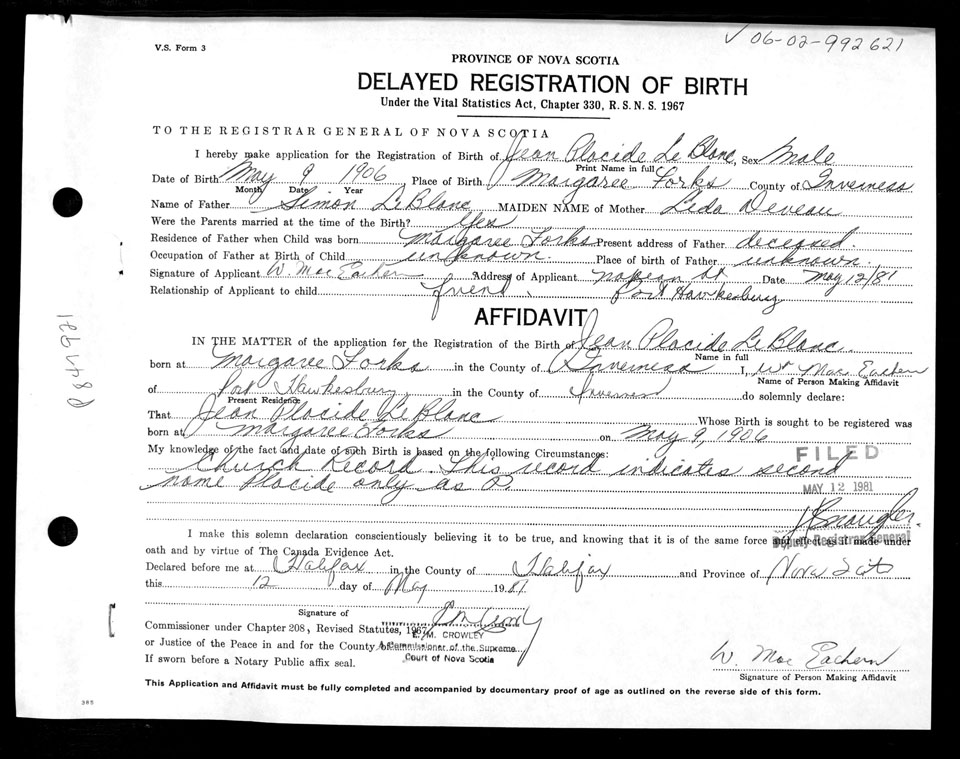 ✓ 06-02-992621
V.S. Form 3
PROVINCE OF NOVA SCOTIA
DELAYED REGISTRATION OF BIRTH
Under the Vital Statistics Act, Chapter 330, R. S. N. S. 1967
TO THE REGISTRAR GENERAL OF NOVA SCOTIA
I hereby make application for the Registration of Birth of Jean Placide Le Blanc, Sex Male
Print Name in full
Date of Birth May 9 1906 Place of Birth Margaree Forks County of Inverness
Month Date Year
Name of Father Simon LeBlanc MAIDEN NAME of Mother Leda Deveau
Were the Parents married at the time of the Birth? Yes
Residence of Father when Child was born Margaree Forks Present address of Father deceased.
Occupation of Father at Birth of Child unknown. Place of birth of Father unknown.
Signature of Applicant W MacEachern Address of Applicant Napean St. Date May 12/81
Relationship of Applicant to child friend. Port Hawkesbury
AFFIDAVIT
IN THE MATTER of the application for the Registration of the Birth of Jean Placide Le Blanc.
Name in full
born at Margaree Forks in the County of Inverness I, Wm Mac Eachern
Name of Person Making Affidavit
of Port Hawkesbury in the County of Inverness do solemnly declare:
Present Residence
That Jean Placide Le Blanc Whose Birth is sought to be registered was
born at Margaree Forks on May 9, 1906
My knowledge of the fact and date of such Birth is based on the following Circumstances:
Church Record. This record indicates second
name Placide only as P.
FILED
MAY 12 1981
Deputy Registrar General
I make this solemn declaration conscientiously believing it to be true, and knowing that it is of the same force and effect as if made under
oath and by virtue of The Canada Evidence Act.
Declared before me at Halifax in the County of Halifax and Province of Nova Scotia
this 12 day of May 1981
Signature of
Commissioner under Chapter 208, Revised Statutes, 1967
E. M. CROWLEY
or Justice of the Peace in and for the County of
A Commissioner of the Supreme
Court of Nova Scotia
If sworn before a Notary Public affix seal.
W. Mac Eachern
Signature of Person Making Affidavit
This Application and Affidavit must be fully completed and accompanied by documentary proof of age as outlined on the reverse side of this form.
385